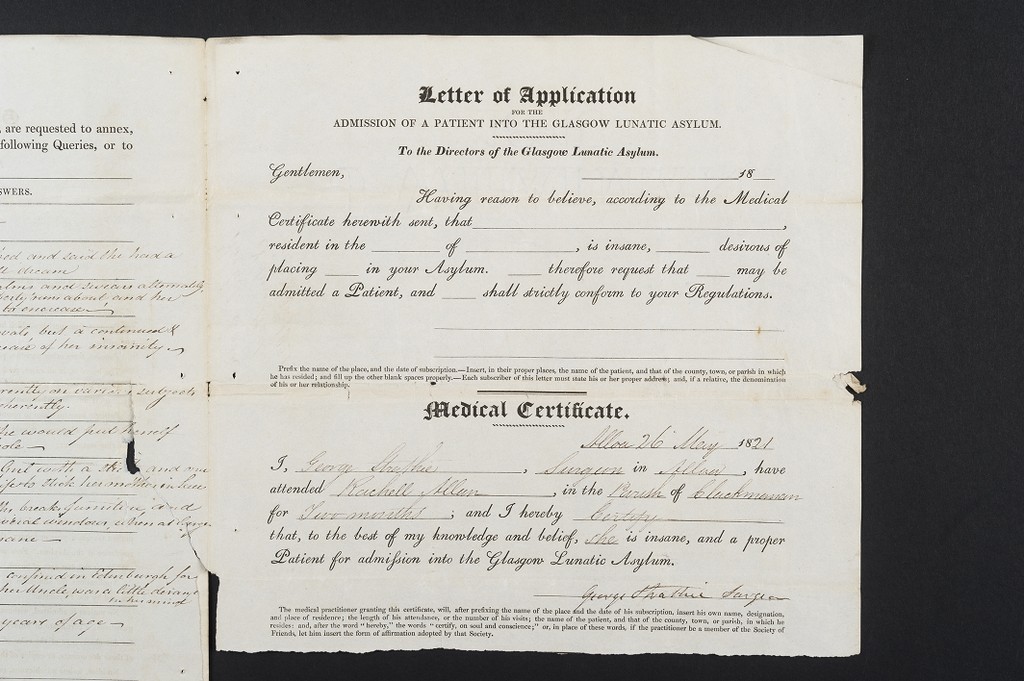 , are requested to annex,
following Queries, or to
SWERS.
and said she had a
dream
and swears alternately
run about and her
to increase
but a continued
of her insanity
on various subjects
herently.
he would put herself
But with a and
stick her mother in law
breaks furniture, and
windows, when at large
confined in Edinburgh for
her Uncle, was a little derang
in his mind
years of age
Letter of Application
FOR THE
ADMISSION OF A PATIENT INTO THE GLASGOW LUNATIC ASYLUM.
To the Directors of the Glasgow Lunatic Asylum.
Gentlemen, 18
Having reason to believe, according to the Medical
Certificate herewith sent, that ,
resident in the of , is insane, desirous of
placing in your Asylum. therefore request that may be
admitted a Patient, and shall strictly conform to your Regulations.
Prefix the name of the place, and the date of subscription.—Insert, in their proper places, the name of the patient, and that of the county, town, or parish in which
he has resided; and fill up the other blank spaces properly.—Each subscriber of this letter must state his or her proper address; and, if a relative, the denomination
of his or her relationship.
Medical Certificate.
Alloa 26 May 1821
I, George Strathie , Surgeon in Alloa , have
attended Rachell Allan , in the Parish of Clackmannan
for Two months ; and I hereby Certify
that, to the best of my knowledge and belief, she is insane, and a proper
Patient for admission into the Glasgow Lunatic Asylum.
George Strathie Surgeon
The medical practitioner granting this certificate, will, after prefixing the name of the place and the date of his subscription, insert his own name, designation,
and place of residence; the length of his attendance, or the number of his visits; the name of the patient, and that of the county, town, or parish, in which he
resides: and, after the word "hereby," the words "certify, on soul and conscience;" or, in place of these words, if the practitioner be a member of the Society of
Friends, let him insert the form of affirmation adopted by that Society.